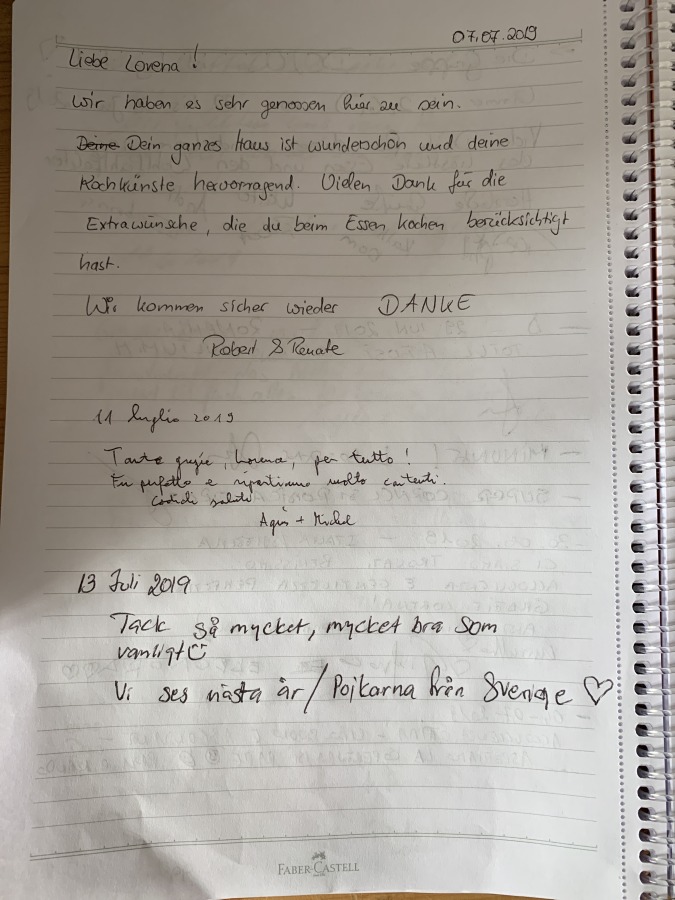 07.07.2019
Liebe Lorena!
Wir haben es sehr genossen hier zu sein.
Deine Dein ganzes Haus ist wunderschön und deine
Kochkünste hervorragend. Vielen Dank für die
Extrawünsche, die du beim Essen kochen berücksichtigt
hast.
Wir kommen sicher wieder DANKE
Robert & Renate
11 luglio 2019
Tante grazie, Lorena, per tutto!
Era perfetto e ripartiamo molto contenti.
Cordiali saluti
+ Michel
13 Juli 2019
Tack så mycket, mycket bra som
vanligt
Vi ses nästa år / Pojkarna från Sverige ♡
FABER-CASTELL